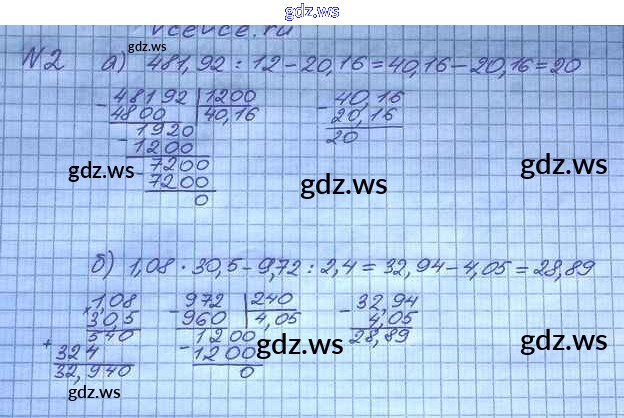 gdz.ws
vcevce.ru
N2 а) 481,92 : 12 - 20,16 = 40,16 - 20,16 = 20
- 48192 | 1200
4800 | 40,16
- 1920
1200
- 7200
7200
0
- 40,16
20,16
20
gdz.ws
gdz.ws
gdz.ws
б) 1,08 · 30,5 - 9,72 : 2,4 = 32,94 - 4,05 = 28,89
× 1,08
30,5
540
+ 324
32,940
- 972 | 240
960 | 4,05
- 1200
1200
0
- 32,94
4,05
28,89
gdz.ws
gdz.ws
gdz.ws
gdz.ws